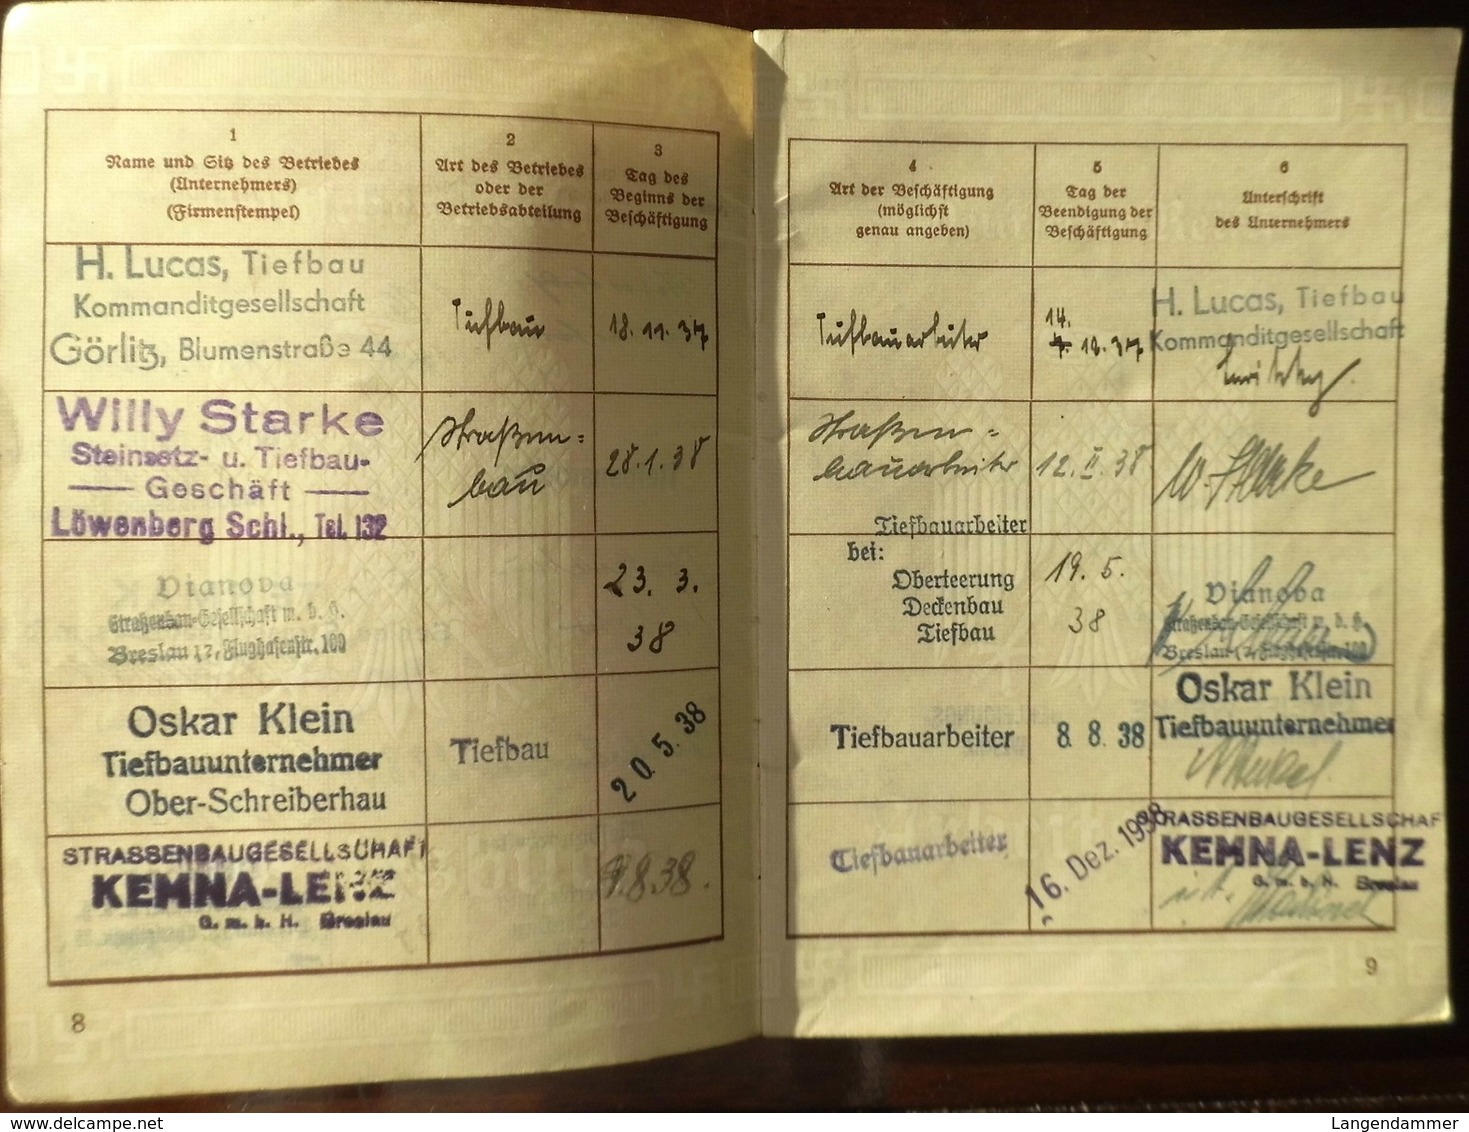 1
Name und Sitz des Betriebes
(Unternehmers)
(Firmenstempel)
2
Art des Betriebes
oder der
Betriebsabteilung
3
Tag des
Beginns der
Beschäftigung
H. Lucas, Tiefbau
Kommanditgesellschaft
Görlitz, Blumenstraße 44
Tiefbau
18. 11. 37
Willy Starke
Steinsetz- u. Tiefbau-
Geschäft
Löwenberg Schl., Tel. 132
Straßen-
bau
28. 1. 38
Vianova
Straßenbau-Gesellschaft m. b. H.
Breslau 17, Flughafenstr. 100
23. 3.
38
Oskar Klein
Tiefbauunternehmer
Ober-Schreiberhau
Tiefbau
20. 5. 38
STRASSENBAUGESELLSCHAFT
KEMNA-LENZ
G. m. b. H. Breslau
9.8.38.
8
4
Art der Beschäftigung
(möglichst
genau angeben)
5
Tag der
Beendigung der
Beschäftigung
6
Unterschrift
des Unternehmers
Tiefbauarbeiter
14.
12. 37
H. Lucas, Tiefbau
Kommanditgesellschaft
Straßen-
bauarbeiter
12. II. 38
W. Starke
Tiefbauarbeiter
bei:
Oberteerung
Deckenbau
Tiefbau
19. 5.
38
Vianova
Straßenbau-Gesellschaft m. b. H.
Breslau 17, Flughafenstr. 100
Tiefbauarbeiter
8. 8. 38
Oskar Klein
Tiefbauunternehmer
Tiefbauarbeiter
16. Dez. 1938
STRASSENBAUGESELLSCHAF
KEMNA-LENZ
G. m. b. H. Breslau
9
delcampe.net
Langendammer